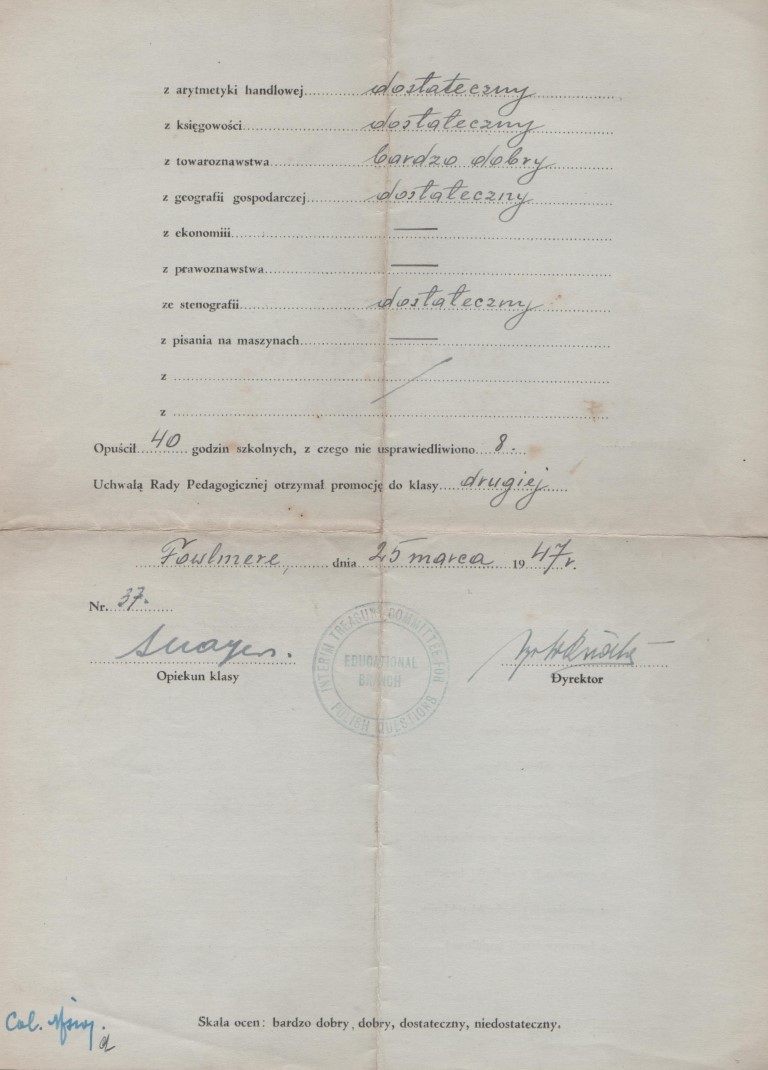 z arytmetyki handlowej.......... dostateczny
z księgowości.......... dostateczny
z towaroznawstwa.......... bardzo dobry
z geografii gospodarczej.......... dostateczny
z ekonomiii.......... —
z prawoznawstwa.......... —
ze stenografii.......... dostateczny
z pisania na maszynach.......... —
z ..........
z ..........
Opuścił 40 godzin szkolnych, z czego nie usprawiedliwiono 8.
Uchwałą Rady Pedagogicznej otrzymał promocję do klasy drugiej
Fowlmere, dnia 25 marca 1947 r.
Nr. 37.
Opiekun klasy
INTERIM TREASURY COMMITTEE FOR POLISH QUESTIONS
EDUCATIONAL
BRANCH
Dyrektor
Col.
Skala ocen: bardzo dobry, dobry, dostateczny, niedostateczny.